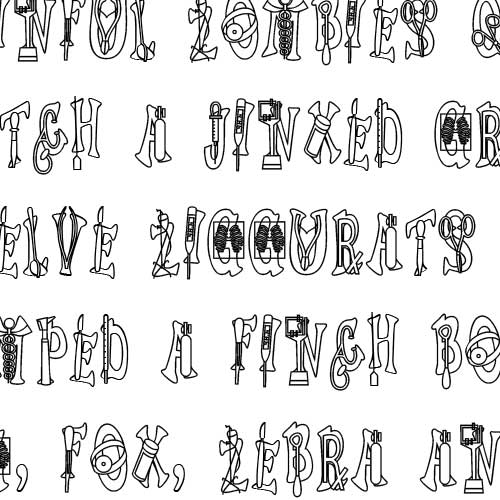 INFUL ZOMBIES Q
TCH A JINXED GR
ELVE ZIGGURATS
MPED A FINCH BO
G, FOX, ZEBRA AN